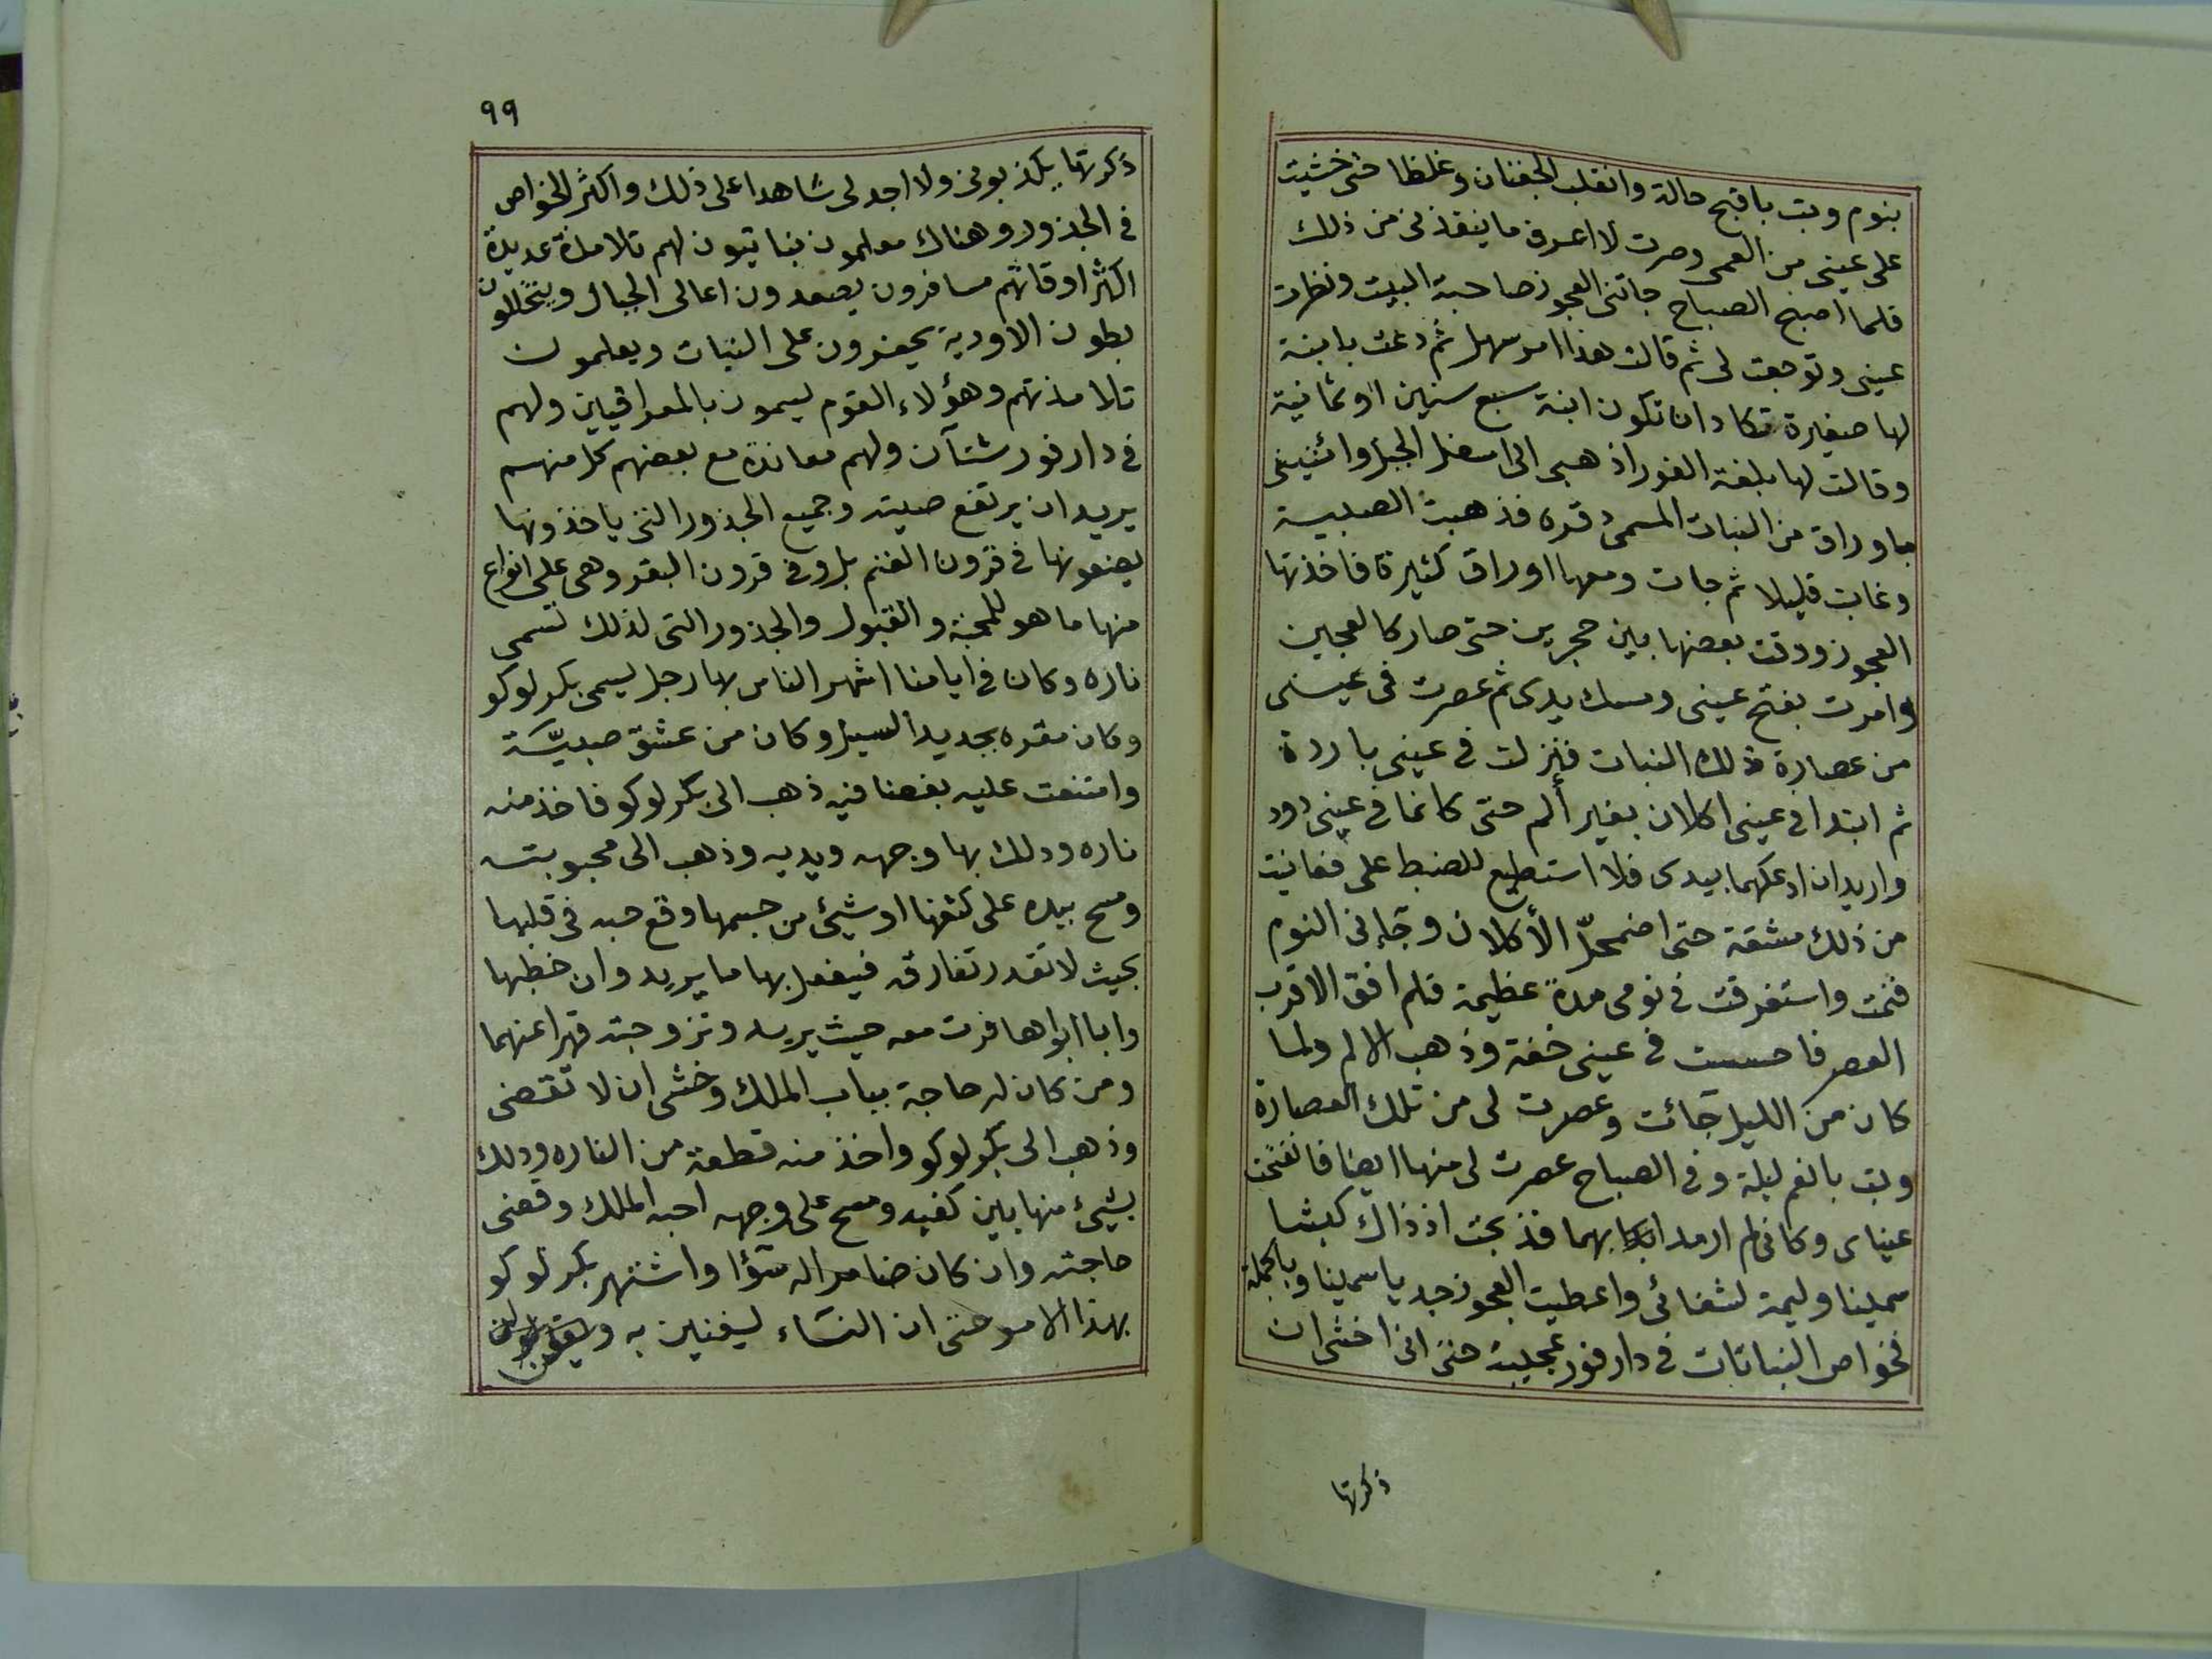 بنوم وبت باقبح حالة وانقلب الجفنان وغلظا حتى خشيت
على عينى من العمى وصرت لا اعرف ما ينقذنى من ذلك
فلما اصبح الصباح جاتنى العجوز صاحبة البيت ونظرت
عينى وتوجعت لى ثم قالت هذا امر سهل ثم دعت بابنة
لها صغيرة تكاد ان تكون ابنة سبع سنين او ثمانية
وقالت لها بلغة الفور اذهبى الى اسفل الجبل وائتينى
باوراق من النبات المسمى دقره فذهبت الصبية
وغابت قليلا ثم جات ومعها اوراق كثيرة فاخذتها
العجوز ودقت بعضها بين حجرين حتى صار كالعجين
وامرت بفتح عينى ومسك يدى ثم عصرت فى عينى
من عصارة ذلك النبات فنزلت فى عينى باردة
ثم ابتدا فى عينى اكلان بغير ألم حتى كانما فى عينى دود
واريد ان ادعكهما بيدى فلا استطيع للضبط على فعانيت
من ذلك مشقة حتى اضمحلّ الأكلان وجاءنى النوم
فنمت واستغرقت فى نومى مدة عظيمة فلم افق الا قرب
العصر فاحسست فى عينى خفة وذهب الالم ولما
كان من الليل جائت وعصرت لى من تلك العصارة
وبت بانعم ليلة وفى الصباح عصرت لى منها ايضا فانفتحت
عيناى وكانى لم ارمد بهما فذبحت اذ ذاك كبشا
سمينا وليمة لشفائى واعطيت العجوز جديا سمينا وبالجملة
فخواص النباتات فى دارفور عجيبة حتى انى اخشى ان
ذكرتها
٩٩
ذكرتها يكذبونى ولا اجد لى شاهدا على ذلك واكثر الخواص
فى الجذور وهناك معلمون نباتيون لهم تلامذة عديدة
اكثر اوقاتهم مسافرون يصعدون اعالى الجبال ويتخللون
بطون الاودية يحفرون على النبات ويعلمون
تلامذتهم وهؤلاء القوم يسمون بالمعراقيين ولهم
فى دارفور شتآن ولهم معاندة مع بعضهم كل منهم
يريد ان يرتفع صيته وجميع الجذور التى ياخذونها
يضعونها فى قرون الغنم بل وفى قرون البقر وهى على انواع
منها ما هو للمحبة والقبول والجذور التى لذلك تسمى
ناره وكان فى ايامنا اشهر الناس بها رجل يسمى بكرلوكو
وكان مقره بجديد السيل وكان من عشق صبيّة
وامتنعت عليه بغضا فيه ذهب الى بكرلوكو فاخذ منه
ناره ودلك بها وجهه ويديه وذهب الى محبوبته
ومسح بيده على كتفها او شيئ من جسمها وقع حبه فى قلبها
بحيث لا تقدر تفارقه فيفعل بها ما يريد وان خطبها
وابا ابواها فرت معه حيث يريد وتزوجته قهرا عنهما
ومن كان له حاجة بباب الملك وخشى ان لا تقضى
وذهب الى بكرلوكو واخذ منه قطعة من الناره ودلك
بشيئ منها بين كفيه ومسح على وجهه احبه الملك وقضى
حاجته وان كان ضامرا له سوٓءا واشتهر بكرلوكو
بهذا الامر حتى ان النساء ليغنين به